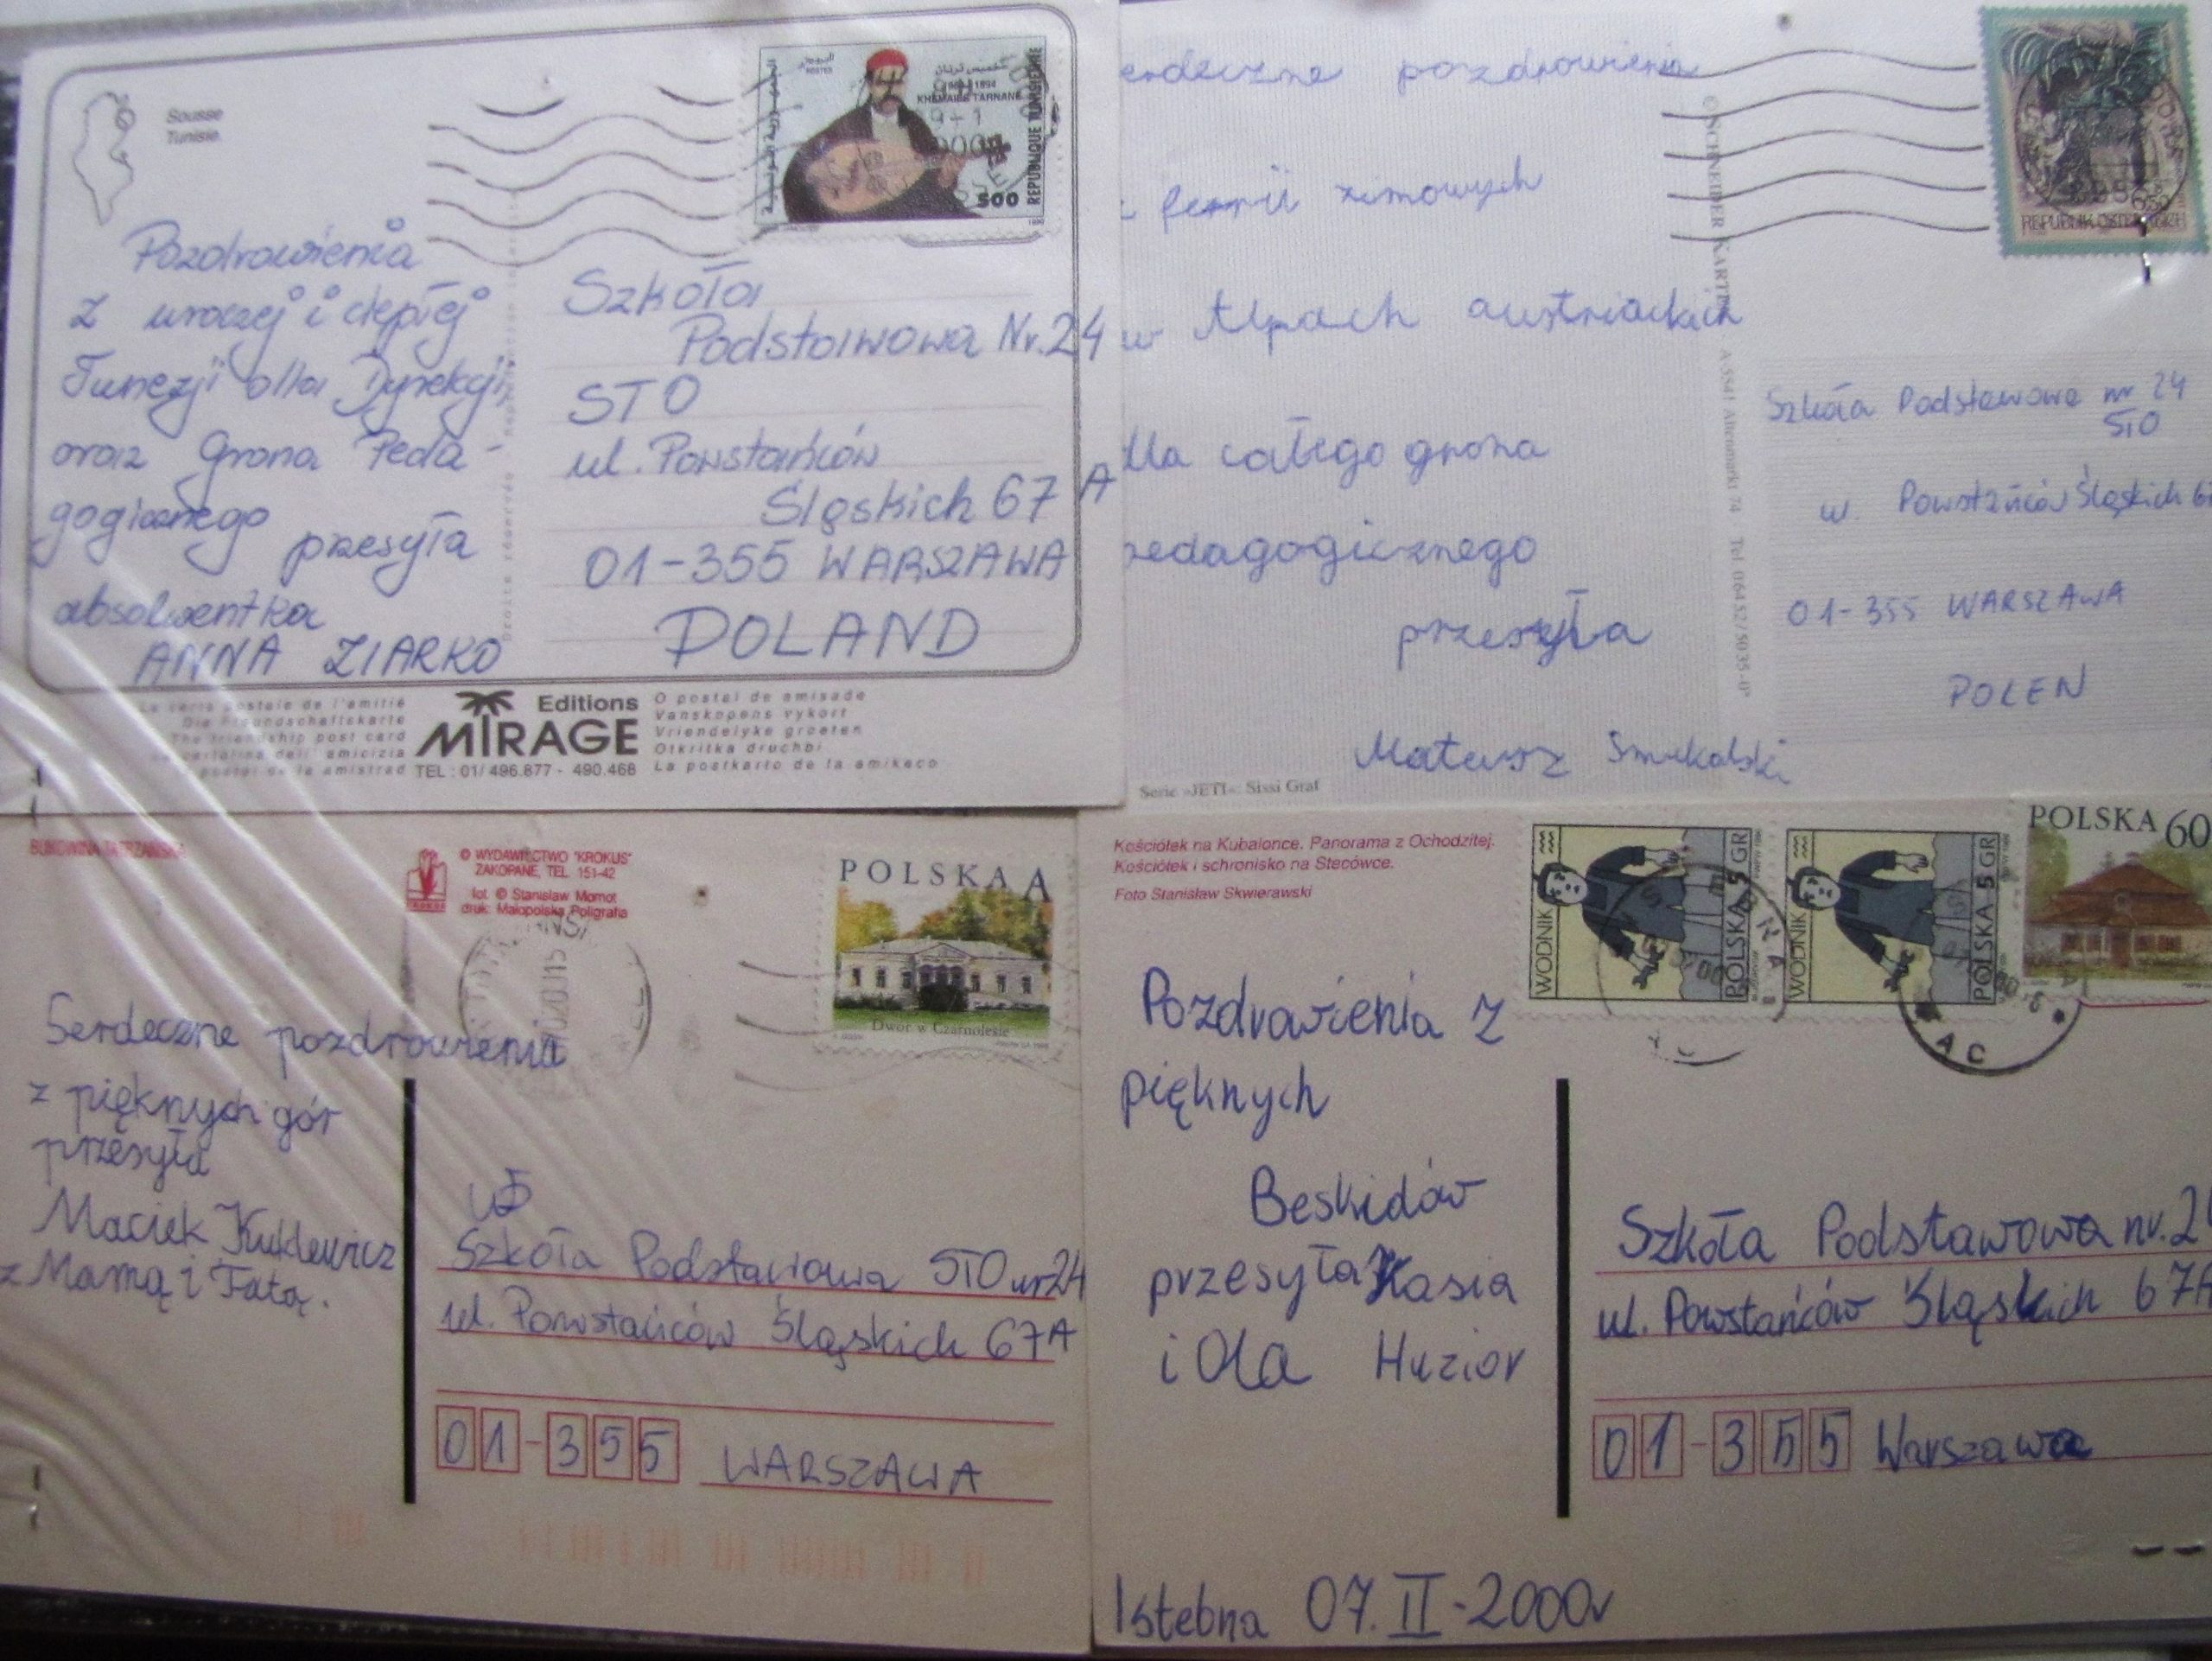 Sousse
Tunisie
500
REPUBLIQUE TUNISIENNE
KHEMAIES TARNANE
Pozdrowienia
z uroczej i ciepłej
Tunezji dla Dyrekcji
oraz Grona Peda-
gogicznego
przesyła
absolwentka
ANNA ZIARKO
Szkoła
Podstawowa Nr. 24
STO
ul. Powstańców
Śląskich 67 A
01-355 WARSZAWA
POLAND
La carte postale de l'amitié
Die Freundschaftskarte
The friendship post card
amicizia
de la amistrad
Editions
MIRAGE
TEL : 01/ 496.877 - 490.468
O postal de amisade
Vanskapens vykort
Vriendelyke groeten
Otkritka druchbi
La postkarto de la amikeco
erdeczne pozdrowienia
z ferii zimowych
w Alpach austriackich
dla całego grona
pedagogicznego
przesyła
Mateusz Smukalski
Serie »JETI«. Sissi Graf
© SCHNEIDER KARTEN · A-5541 Altenmarkt 74 Tel 06452/5035-0*
REPUBLIK ÖSTERREICH
Szkoła Podstawowa nr 24
STO
ul. Powstańców Śląskich 6
01-355 WARSZAWA
POLEN
BUKOWINA TATRZAŃSKA
© WYDAWNICTWO "KROKUS"
ZAKOPANE, TEL. 151-42
fot. © Stanisław Momot
druk: Małopolska Poligrafia
POLSKA A
Dwór w Czarnolesie
Serdeczne pozdrowienia
z pięknych gór
przesyła
Maciek Kuklewicz
z Mamą i Tatą.
Szkoła Podstawowa STO nr 24
ul. Powstańców Śląskich 67A
01-355 WARSZAWA
Kościółek na Kubalonce. Panorama z Ochodzitej.
Kościółek i schronisko na Stecówce.
Foto Stanisław Skwierawski
WODNIK
POLSKA 5 GR
WODNIK
POLSKA 5 GR
POLSKA 60
Pozdrowienia z
pięknych
Beskidów
przesyła Kasia
i Ola Huzior
Szkoła Podstawowa nr. 2
ul. Powstańców Śląskich 67A
01-355 Warszawa
Istebna 07. II - 2000r